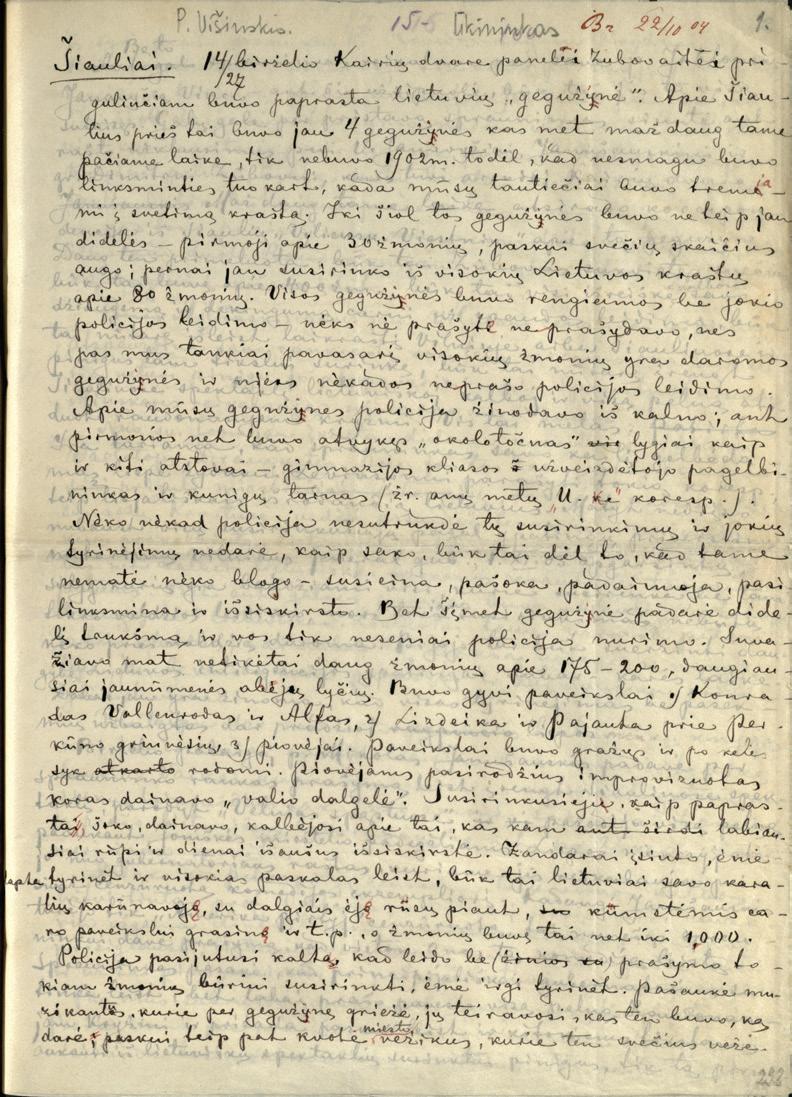 P. Višinskis. 15- Ūkininkas Br 22/10 04 1.
Šiauliai. 14/27 birželio Kairių dvare panelėi Zubovaitėi pri-
gulinčiam buvo paprasta lietuvių „gegužynė". Apie Šiau-
lius prieš tai buvo jau 4 gegužynės kas met maž daug tame
pačiame laike, tik nebuvo 1902 m. todėl, kad nesmagu buvo
linksminties tuokart, kada mūsų tautiečiai buvo tremia-
mi į svetimą kraštą. Iki šiol tos gegužynės buvo ne teip jau
didelės – pirmoji apie 30 žmonių, paskui svečių skaičius
augo; pernai jau susirinko iš visokių Lietuvos kraštų
apie 80 žmonių. Visos gegužynės buvo rengiamos be jokio
policijos leidimo – nėks nė prašytė neprašydavo, nes
pas mus tankiai pavasarį visokių žmonių yra daromos
gegužynės ir njēs nėkados neprašo policijos leidimo.
Apie mūsų gegužynes policija žinodavo iš kalno; ant
pirmosios net buvo atvykęs „okolotočnas" lygiai kaip
ir kiti atstovai – gimnazijos kliasos užveizdėtojo pagelbi-
ninkas ir kunigų tarnas (žr. anų metų „U-kė" koresp.).
Nėko nėkad policija nesutrukdė tų susirinkimų ir jokių
tyrinėjimų nedarė, kaip sako, būk tai dėl to, kad tame
nematė nėko blogo – susieina, pašoka, padainuoja, pasi-
linksmina ir išsiskirsto. Bet šįmet gegužynė padarė dide-
lį trukšmą ir vos tik neseniai policija nurimo. Suva-
žiavo mat netikėtai daug žmonių apie 175–200, daugiau-
siai jaunūmenės abėjų lyčių. Buvo gyvi paveikslai 1) Konra-
das Vallenrodas ir Alfas, 2) Lizdeika ir Pajauta prie Per-
kūno griuvėsių, 3) piovėjai. Paveikslai buvo gražųs ir po kelis
syk atkarto rodomi. Piovėjams pasirodžius improvizuotas
koras dainavo „valio dalgelė". Susirinkusiejie, kaip papras-
tai šoko, dainavo, kalbėjosi apie tai, kas kam ant širdi labiau-
siai rūpi ir dienai išaušus išsiskirstė. Žandarai įsiuto, ėmė
slapta tyrinėt ir visokias paskalas leist, būk tai lietuviai savo kara-
lių karūnavoję, su dalgiais ėję rusų piaut, kumstėmis ca-
ro paveikslui grasinę ir t.p., o žmonių buvę tai net iki 1,000.
Policija pasijutusi kalta, kad leido be (žinios) prašymo to-
kiam žmonių būriui susirinkti, ėmė irgi tyrinėt. Pašaukė mu-
zikantės, kurie per gegužynę griežė, jų teiravosi, kas ten buvo, ką
darė; paskui teip pat kvotė miesto vežikus, kurie ten svečius vežė.